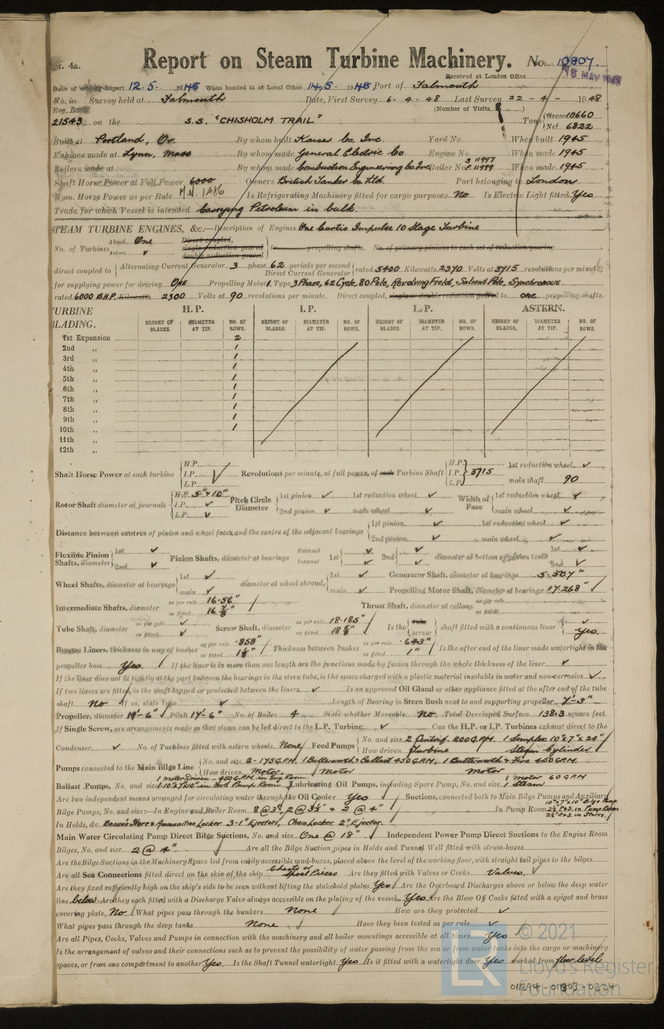 Rpt. 4a.
Report on Steam Turbine Machinery. No. 10907
Received at London Office 18 MAY 1948
Date of writing Report 12.5. 1948 When handed in at Local Office 14.5. 1948 Port of Falmouth
No. in Survey held at Falmouth Date, First Survey 6-4-48 Last Survey 22-4-1948
Reg. Book. (Number of Visits
21543 on the S.S. "CHISHOLM TRAIL" Tons Gross 10660 Net 6822
Built at Portland, Or. By whom built Kaiser Co. Inc. Yard No. When built 1945
Engines made at Lynn, Mass By whom made General Electric Co Engine No. When made 1945
Boilers made at By whom made Combustion Engineering Co Inc Boiler No. When made 1945
Shaft Horse Power at Full Power 6000 Owners British Tanker Co Ltd. Port belonging to London
Nom. Horse Power as per Rule M.N. 1486 Is Refrigerating Machinery fitted for cargo purposes No Is Electric Light fitted Yes
Trade for which Vessel is intended Carrying Petroleum in bulk.
STEAM TURBINE ENGINES, &c.—Description of Engines One Curtis Impulse 10 Stage Turbine
No. of Turbines Ahead One Astern Direct coupled,
direct coupled to Alternating Current Generator 3 phase 62 periods per second Direct Current Generator rated 5400 Kilowatts 2370 Volts at 3715 revolutions per minute;
for supplying power for driving One Propelling Motor, Type 3 Phase, 62 Cycle, 80 Pole, Revolving Field, Salient Pole, Synchronous
rated 6000 B.H.P. Kilowatts 2300 Volts at 90 revolutions per minute. Direct coupled, to one propelling shafts.
TURBINE BLADING. H.P. I.P. L.P. ASTERN.
HEIGHT OF BLADES. DIAMETER AT TIP. NO. OF ROWS. HEIGHT OF BLADES. DIAMETER AT TIP. NO. OF ROWS. HEIGHT OF BLADES. DIAMETER AT TIP. NO. OF ROWS. HEIGHT OF BLADES. DIAMETER AT TIP. NO. OF ROWS.
1st Expansion 2
2nd " 1
3rd " 1
4th " 1
5th " 1
6th " 1
7th " 1
8th " 1
9th " 1
10th " 1
11th "
12th "
Shaft Horse Power at each turbine H.P. I.P. L.P. Revolutions per minute, at full power, of each Turbine Shaft H.P. I.P. L.P. 3715 1st reduction wheel main shaft 90
Rotor Shaft diameter at journals H.P. 5" & 10" I.P. L.P. Pitch Circle Diameter 1st pinion 2nd pinion 1st reduction wheel main wheel Width of Face 1st reduction wheel main wheel
Distance between centres of pinion and wheel faces and the centre of the adjacent bearings 1st pinion 2nd pinion 1st reduction wheel main wheel
Flexible Pinion Shafts, diameter 1st 2nd Pinion Shafts, diameter at bearings External Internal 1st 2nd diameter at bottom of pinion teeth 1st 2nd
Wheel Shafts, diameter at bearings 1st main diameter at wheel shroud, 1st main Generator Shaft, diameter at bearings 5.507" Propelling Motor Shaft, diameter at bearings 17.268"
Intermediate Shafts, diameter as per rule 16.56" as fitted Thrust Shaft, diameter at collars as per rule as fitted
Tube Shaft, diameter as per rule as fitted Screw Shaft, diameter as per rule 18.185" as fitted Is the tube screw shaft fitted with a continuous liner Yes
Bronze Liners, thickness in way of bushes as per rule .858" as fitted Thickness between bushes as per rule .643" as fitted 1" Is the after end of the liner made watertight in the
propeller boss Yes If the liner is in more than one length are the junctions made by fusion through the whole thickness of the liner
If the liner does not fit tightly at the part between the bearings in the stern tube, is the space charged with a plastic material insoluble in water and non-corrosive
If two liners are fitted, is the shaft lapped or protected between the liners Is an approved Oil Gland or other appliance fitted at the after end of the tube
shaft No If so, state type Length of Bearing in Stern Bush next to and supporting propeller 7'-3"
Propeller, diameter 19'-6" Pitch 17'-6" No. of Blades 4 State whether Moveable No Total Developed Surface 138.3 square feet.
If Single Screw, are arrangements made so that steam can be led direct to the L.P. Turbine Can the H.P. or I.P. Turbines exhaust direct to the
Condenser No. of Turbines fitted with astern wheels None Feed Pumps No. and size 2 Centrif. 200 G.P.M. 1 Simplex 10"x7"x24" How driven Turbine Steam Cylinder
Pumps connected to the Main Bilge Line No. and size 2-175 G.P.M. 1 Butterworth & Ballast 450 G.P.M. 1 Butterworth & Fire 450 G.P.M. How driven Motor Motor Motor
Ballast Pumps, No. and size Lubricating Oil Pumps, including Spare Pump, No. and size 1 motor 60 G.P.M 1 Steam
Are two independent means arranged for circulating water through the Oil Cooler Yes Suctions, connected both to Main Bilge Pumps and Auxiliary
Bilge Pumps, No. and size:—In Engine and Boiler Room In Pump Room
In Holds, &c. Chain Locker 2" Ejector.
Main Water Circulating Pump Direct Bilge Suctions, No. and size One @ 18" Independent Power Pump Direct Suctions to the Engine Room
Bilges, No. and size 2 @ 4" Are all the Bilge Suction pipes in Holds and Tunnel Well fitted with strum-boxes
Are the Bilge Suctions in the Machinery Space led from easily accessible mud-boxes, placed above the level of the working floor, with straight tail pipes to the bilges
Are all Sea Connections fitted direct on the skin of the ship Chests or Spool Pieces Are they fitted with Valves or Cocks Valves.
Are they fixed sufficiently high on the ship's side to be seen without lifting the stokehold plates Yes Are the Overboard Discharges above or below the deep water
line below Are they each fitted with a Discharge Valve always accessible on the plating of the vessel Yes Are the Blow Off Cocks fitted with a spigot and brass
covering plate No What pipes pass through the bunkers None How are they protected
What pipes pass through the deep tanks None Have they been tested as per rule
Are all Pipes, Cocks, Valves and Pumps in connection with the machinery and all boiler mountings accessible at all times Yes
Is the arrangement of valves and their connections such as to prevent the possibility of water passing from the sea or from water tanks into the cargo or machinery
spaces, or from one compartment to another Yes Is the Shaft Tunnel watertight Yes Is it fitted with a watertight door Yes worked from floor level
© 2021
Lloyd's Register
Foundation
011294-011303-0224